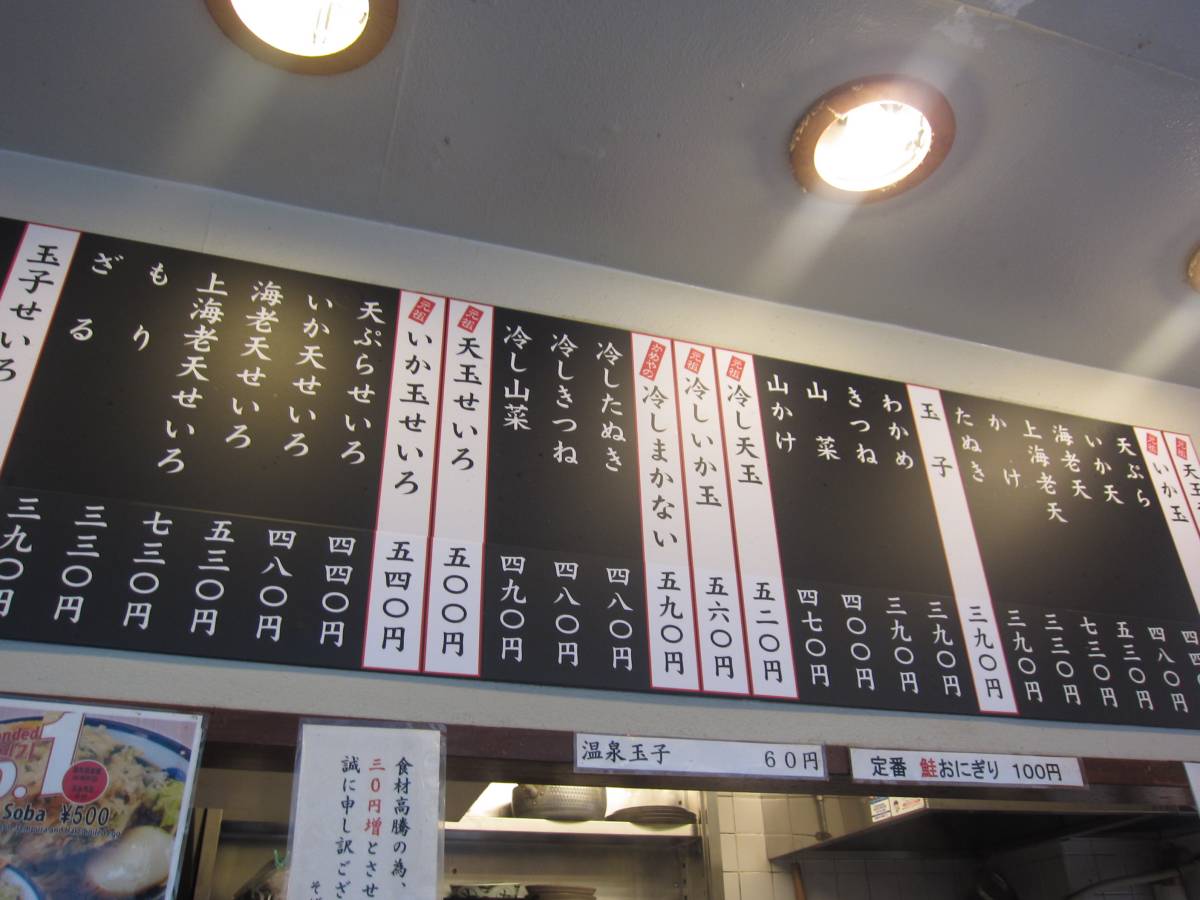 元祖 天玉
元祖 いか玉
天ぷら 四四
いか天 四八〇円
海老天 五三〇円
上海老天 七三〇円
かけ 三三〇円
たぬき 三九〇円
玉子 三九〇円
わかめ 三九〇円
きつね 三九〇円
山菜 四〇〇円
山かけ 四七〇円
元祖 冷し天玉 五二〇円
元祖 冷しいか玉 五六〇円
かめやの 冷しまかない 五九〇円
冷したぬき 四八〇円
冷しきつね 四八〇円
冷し山菜 四九〇円
元祖 天玉せいろ 五〇〇円
元祖 いか玉せいろ 五四〇円
天ぷらせいろ 四四〇円
いか天せいろ 四八〇円
海老天せいろ 五三〇円
上海老天せいろ 七三〇円
もり 三三〇円
ざる 三九〇円
玉子せいろ
定番 鮭おにぎり 100円
温泉玉子 60円
食材高騰の為、
三〇円増とさせ
誠に申し訳ござ
Soba ¥500